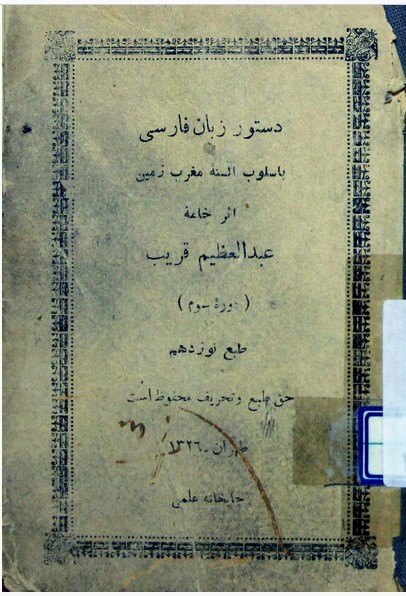 دستور زبان فارسی
باسلوب السنه مغرب زمین
اثر خامهٔ
عبدالعظیم قریب
(دورهٔ سوم)
طبع نوزدهم
حق طبع وتحریف محفوظ است
طهران ـ ۱۳۲۶
چاپخانه علمی